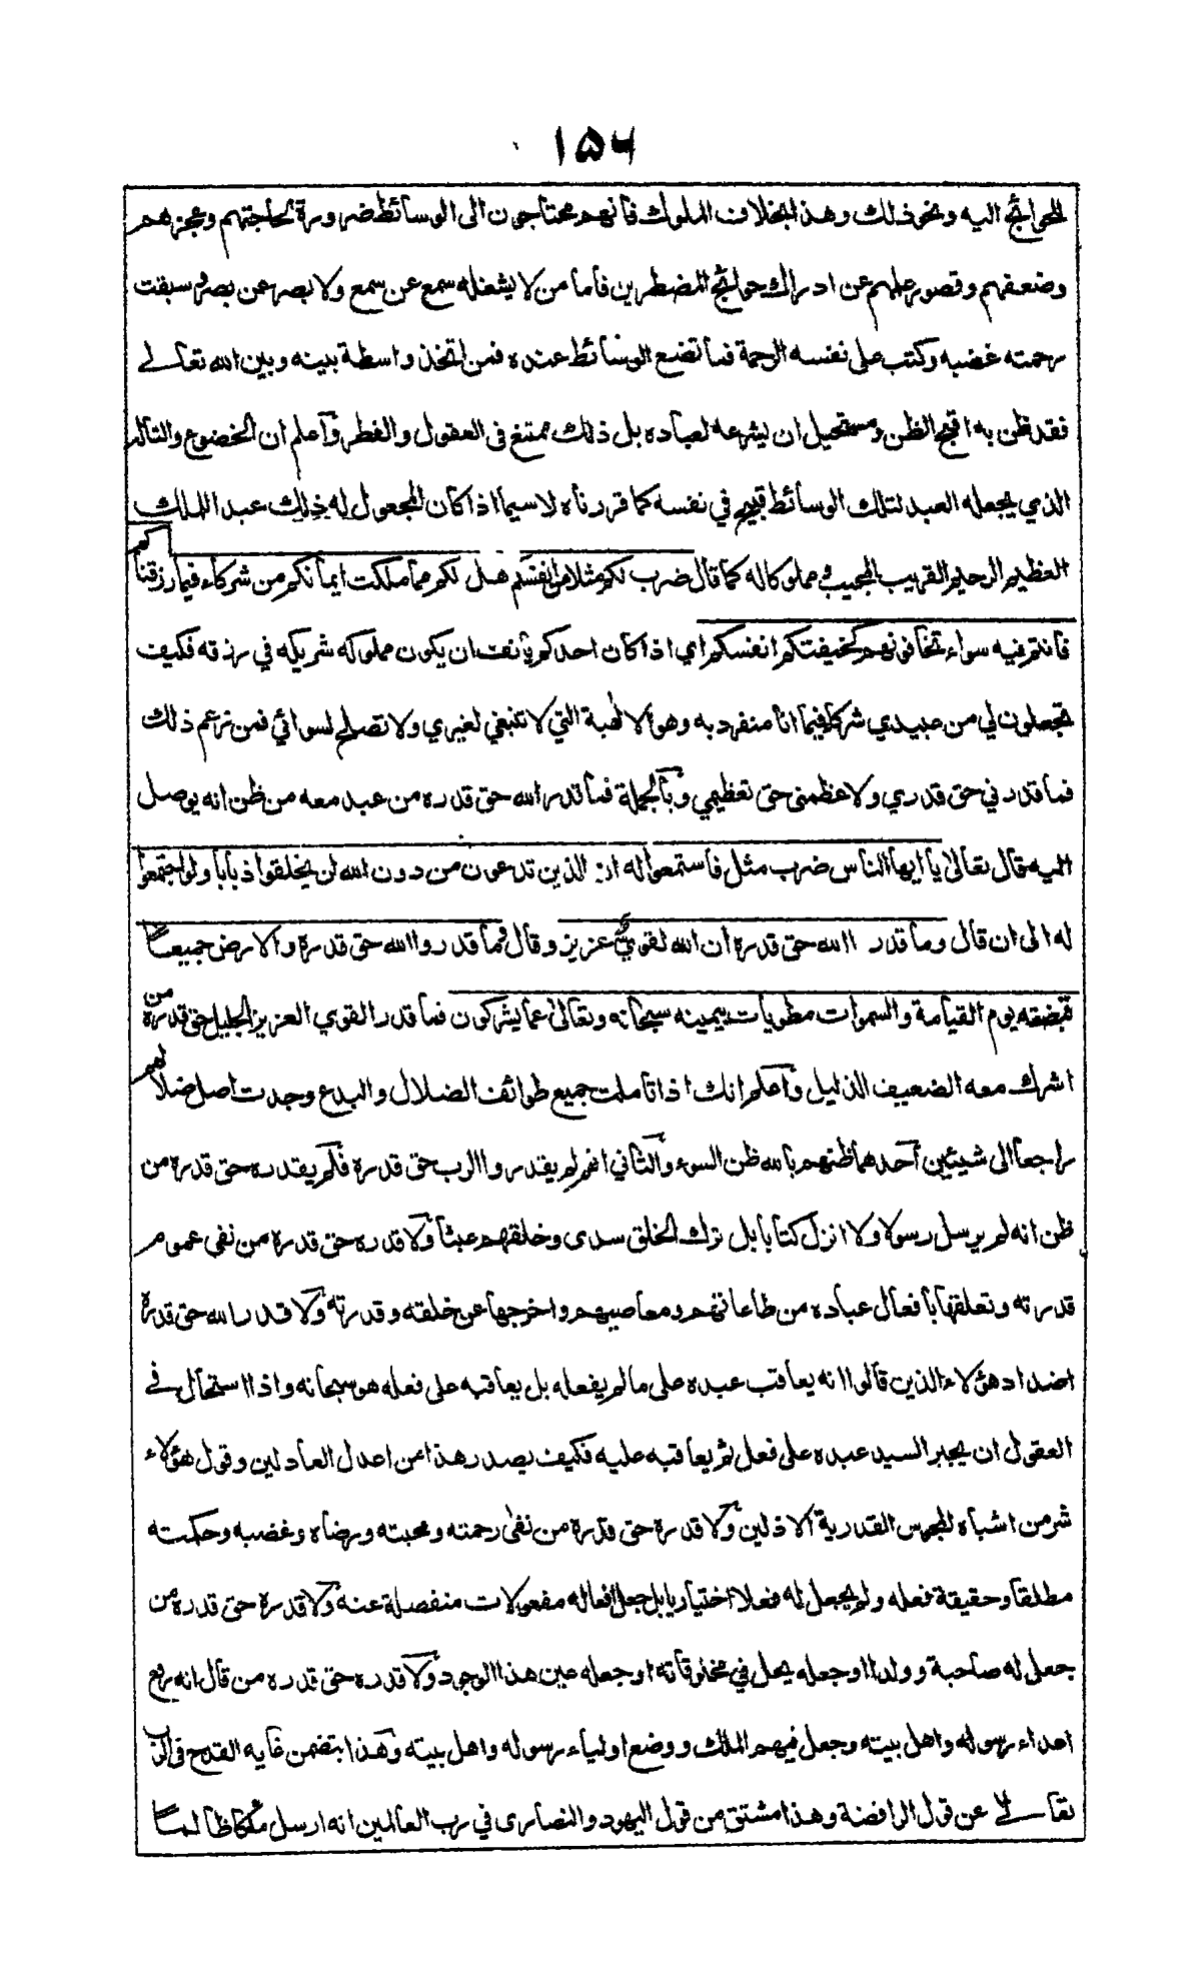 ١٥٦
الحوائج اليه ونحو ذلك وهذا بخلاف الملوك فانهم محتاجون الى الوسائط ضرورة لحاجتهم وعجزهم
وضعفهم وقصور علمهم عن ادراك حوائج المضطرين فاما من لا يشغله سمع عن سمع ولا بصر عن بصر وسبقت
رحمته غضبه وكتب على نفسه الرحمة فما تصنع الوسائط عنده فمن اتخذ واسطة بينه وبين الله تعالى
فقد ظن به اقبح الظن ومستحيل ان يشرعه لعباده بل ذلك ممتنع في العقول والفطر واعلم ان الخضوع والتأله
الذي يجعله العبد لتلك الوسائط قبيح في نفسه كما قررناه لا سيما اذا كان المجعول له ذلك عبد الملك
العظيم الرحيم القريب المجيب ومملوكا له كما قال ضرب لكم مثلا من انفسكم هل لكم مما ملكت ايمانكم من شركاء فيما رزقناكم
فانتم فيه سواء تخافونهم كخيفتكم انفسكم اي اذا كان احدكم يأنف ان يكون مملوكه شريكه في رزقه فكيف
تجعلون لي من عبيدي شركاء فيما انا منفرد به وهو الالهية التي لا تنبغي لغيري ولا تصلح لسوائي فمن زعم ذلك
فما قدرني حق قدري ولا عظمني حق تعظيمي وبالجملة فما قدر الله حق قدره من عبد معه من ظن انه يوصل
اليه قال تعالى يا ايها الناس ضرب مثل فاستمعوا له ان الذين تدعون من دون الله لن يخلقوا ذبابا ولو اجتمعوا
له الى ان قال وما قدروا الله حق قدره ان الله لقوي عزيز وقال وما قدروا الله حق قدره والارض جميعا
قبضته يوم القيامة والسموات مطويات بيمينه سبحانه وتعالى عما يشركون فما قدر القوي العزيز الجليل حق قدره من
اشرك معه الضعيف الذليل واعلم انك اذا تاملت جميع طوائف الضلال والبدع وجدت اصل ضلالهم
راجعا الى شيئين احدهما ظنهم بالله ظن السوء والثاني انهم لم يقدروا الرب حق قدره فلم يقدره حق قدره من
ظن انه لم يرسل رسولا ولا انزل كتابا بل ترك الخلق سدى وخلقهم عبثا ولا قدره حق قدره من نفى عموم
قدرته وتعلقها بافعال عباده من طاعاتهم ومعاصيهم واخرجها عن خلقه وقدرته ولا قدر الله حق قدره
اضداد هؤلاء الذين قالوا انه يعاقب عبده على ما لم يفعله بل يعاقبه على فعله هو سبحانه واذا استحال في
العقول ان يجبر السيد عبده على فعل ثم يعاقبه عليه فكيف يصدر هذا من اعدل العادلين وقول هؤلاء
شر من اشباه المجوس القدرية الاذلين ولا قدره حق قدره من نفى رحمته ومحبته ورضاه وغضبه وحكمته
مطلقا وحقيقة فعله ولم يجعل له فعلا اختياريا بل جعل افعاله مفعولات منفصلة عنه ولا قدره حق قدره من
جعل له صاحبة وولدا او جعله يحل في مخلوقاته او جعله عين هذا الوجود ولا قدره حق قدره من قال انه رفع
اعداء رسوله واهل بيته وجعل فيهم الملك ووضع اولياء رسوله واهل بيته وهذا يتضمن غاية القدح في الرب
تعالى عن قول الرافضة وهذا مشتق من قول اليهود والنصارى في رب العالمين انه ارسل ملكا ظالما